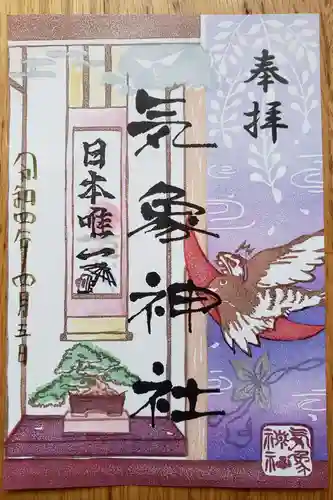 奉拝
気象神社
日本唯一
令和四年四月三日
気象神社